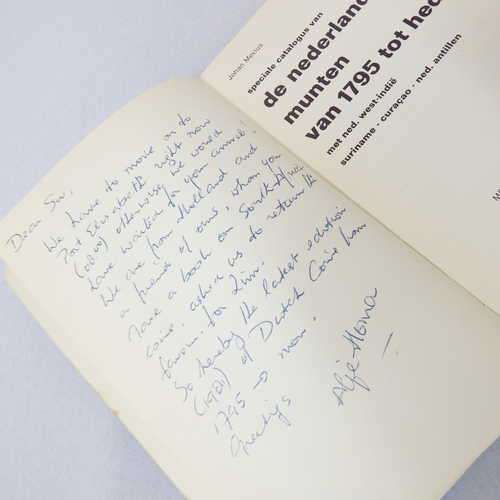 Dear Sir,
We have to move on to
Port Elizabeth right now
otherwise we would
have waited for your arrival!
We are from Holland and
a friend of ours, whom you
gave a book on South African
coins, asked us to return the
favour for him.
So hereby the latest edition
(1981) of Dutch Coins from
1795 → now.
Greetings
Johan Mevius
speciale catalogus van
de nederland
munten
van 1795 tot hed
met ned. west-indië
suriname - curaçao - ned. antillen